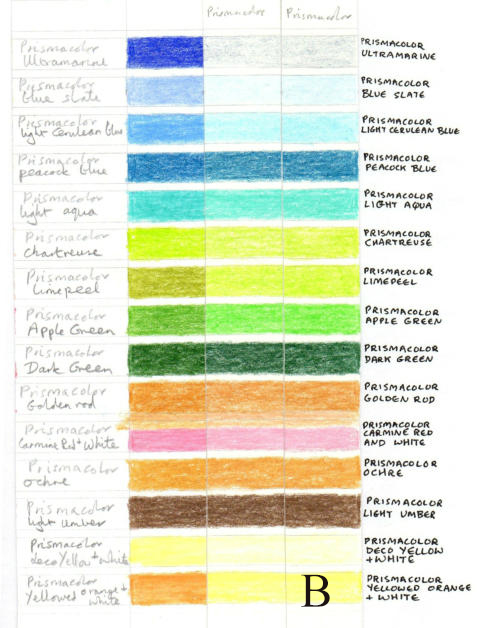 Prismacolor Prismacolor
Prismacolor
Ultramarine
PRISMACOLOR
ULTRAMARINE
Prismacolor
blue slate
PRISMACOLOR
BLUE SLATE
Prismacolor
light Cerulean blue
PRISMACOLOR
LIGHT CERULEAN BLUE
Prismacolor
peacock blue
PRISMACOLOR
PEACOCK BLUE
Prismacolor
light aqua
PRISMACOLOR
LIGHT AQUA
Prismacolor
Chartreuse
PRISMACOLOR
CHARTREUSE
Prismacolor
Limepeel
PRISMACOLOR
LIMEPEEL
Prismacolor
Apple Green
PRISMACOLOR
APPLE GREEN
Prismacolor
Dark Green
PRISMACOLOR
DARK GREEN
Prismacolor
Golden rod
PRISMACOLOR
GOLDEN ROD
Prismacolor
Carmine Red + White
PRISMACOLOR
CARMINE RED
AND WHITE
Prismacolor
ochre
PRISMACOLOR
OCHRE
Prismacolor
light umber
PRISMACOLOR
LIGHT UMBER
Prismacolor
deco Yellow + White
PRISMACOLOR
DECO YELLOW
+ WHITE
Prismacolor
Yellowed orange +
White
B
PRISMACOLOR
YELLOWED ORANGE
+ WHITE